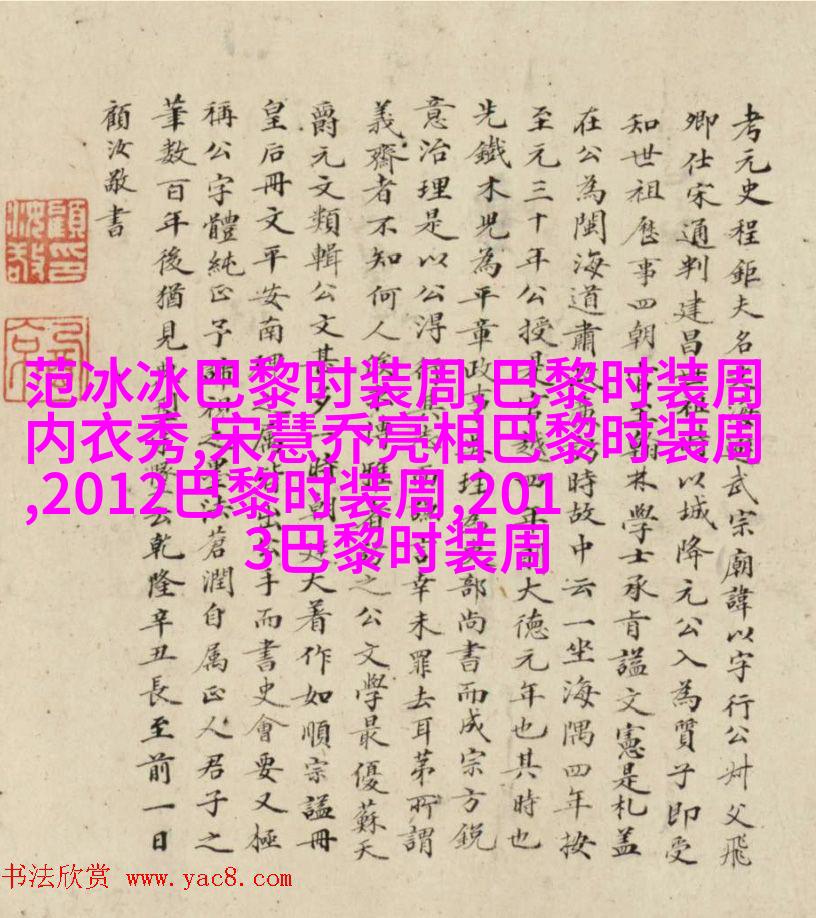 考元史程鉅夫名武宗廟諱以字行公叔父飛
卿仕宋通判建昌以城降元公入為質子即受
知世祖歷事四朝林學士承旨諡文憲是札蓋
在公為閩海道肅時故中云一坐海隅四年按
至元三十年公授是官越四年大德元年也其時也
先鐵木兒為平章政事部尚書而成宗方銳
意治理是以公得幸未罪去耳苐所謂
義齋者不知何人之公文學最優蘇天
爵元文類輯公文甚夕時朝大著作如順宗諡冊
皇后冊文平安南出公手而書史會要又極
稱公字體純正予蒼潤自属正人君子之
筆數百年後猶見乾隆辛丑長至前一日
顧汝敬書
范冰冰巴黎时装周,巴黎时装周
内衣秀,宋慧乔亮相巴黎时装周
,2012巴黎时装周,201
3巴黎时装周
书法欣赏 www.yac8.com